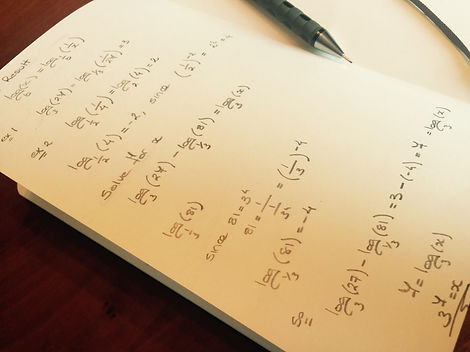 Result
log_b(x) = log_{1/b}(1/x)
ex 1
log_3(27) = log_{1/3}(1/27) = 3
ex 2
log_{1/2}(1/4) = log_2(4) = 2
log_{1/2}(4) = -2, since (1/2)^{-2} = 2^2 = 4
Solve for x
log_3(27) - log_{1/3}(81) = log_3(x)
log_{1/3}(81)
since 81 = 3^4
81 = 1/(1/3^4) = (1/3)^{-4}
log_{1/3}(81) = -4
so
log_3(27) - log_{1/3}(81) = 3-(-4) = 7 = log_3(x)
7 = log_3(x)
3^7 = x